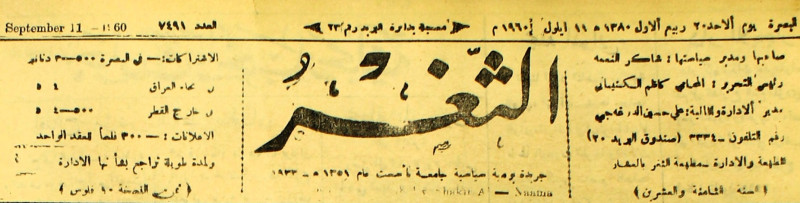 البصرة يوم الاحد ٢٠ ربيع الاول ١٣٨٠ ه ١١ ايلول ١٩٦٠ م
«مسجلة بدائرة البريد رقم ٢٣»
العدد ٧٤٩١
September 11 - 1960
صاحبها ومدير سياستها: شاكر النعمه
رئيس التحرير: المحامي كاظم الكشيباني
مدير الادارة والمالية: علي حسين
رقم التلفون – ٣٣٣٤ (صندوق البريد ٢٠)
المطبعة والادارة – مطبعة الثغر بالعشار
(السنة الثامنة والعشرين)
الثغر
جريدة يومية سياسية جامعة تأسست عام ١٣٥١ ه – ١٩٣٣
Al – Naama
الاشتراكات: – في البصرة ٥٠٠–٣ دنانير
في انحاء العراق ٤
في خارج القطر ٥٠٠–٤
الاعلانات: – ٣٠٠ فلساً للعقد الواحد
ولمدة طويلة تراجع بشأنها الادارة
(ثمن النسخة ١٠ فلوس)